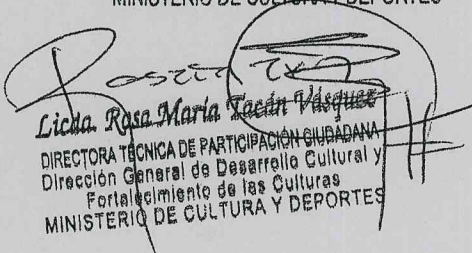 MINISTERIO DE CULTURA Y DEPORTES
Licda. Rosa María Tacán Vásquez
DIRECTORA TÉCNICA DE PARTICIPACIÓN CIUDADANA
Dirección General de Desarrollo Cultural y
Fortalecimiento de las Culturas
MINISTERIO DE CULTURA Y DEPORTES